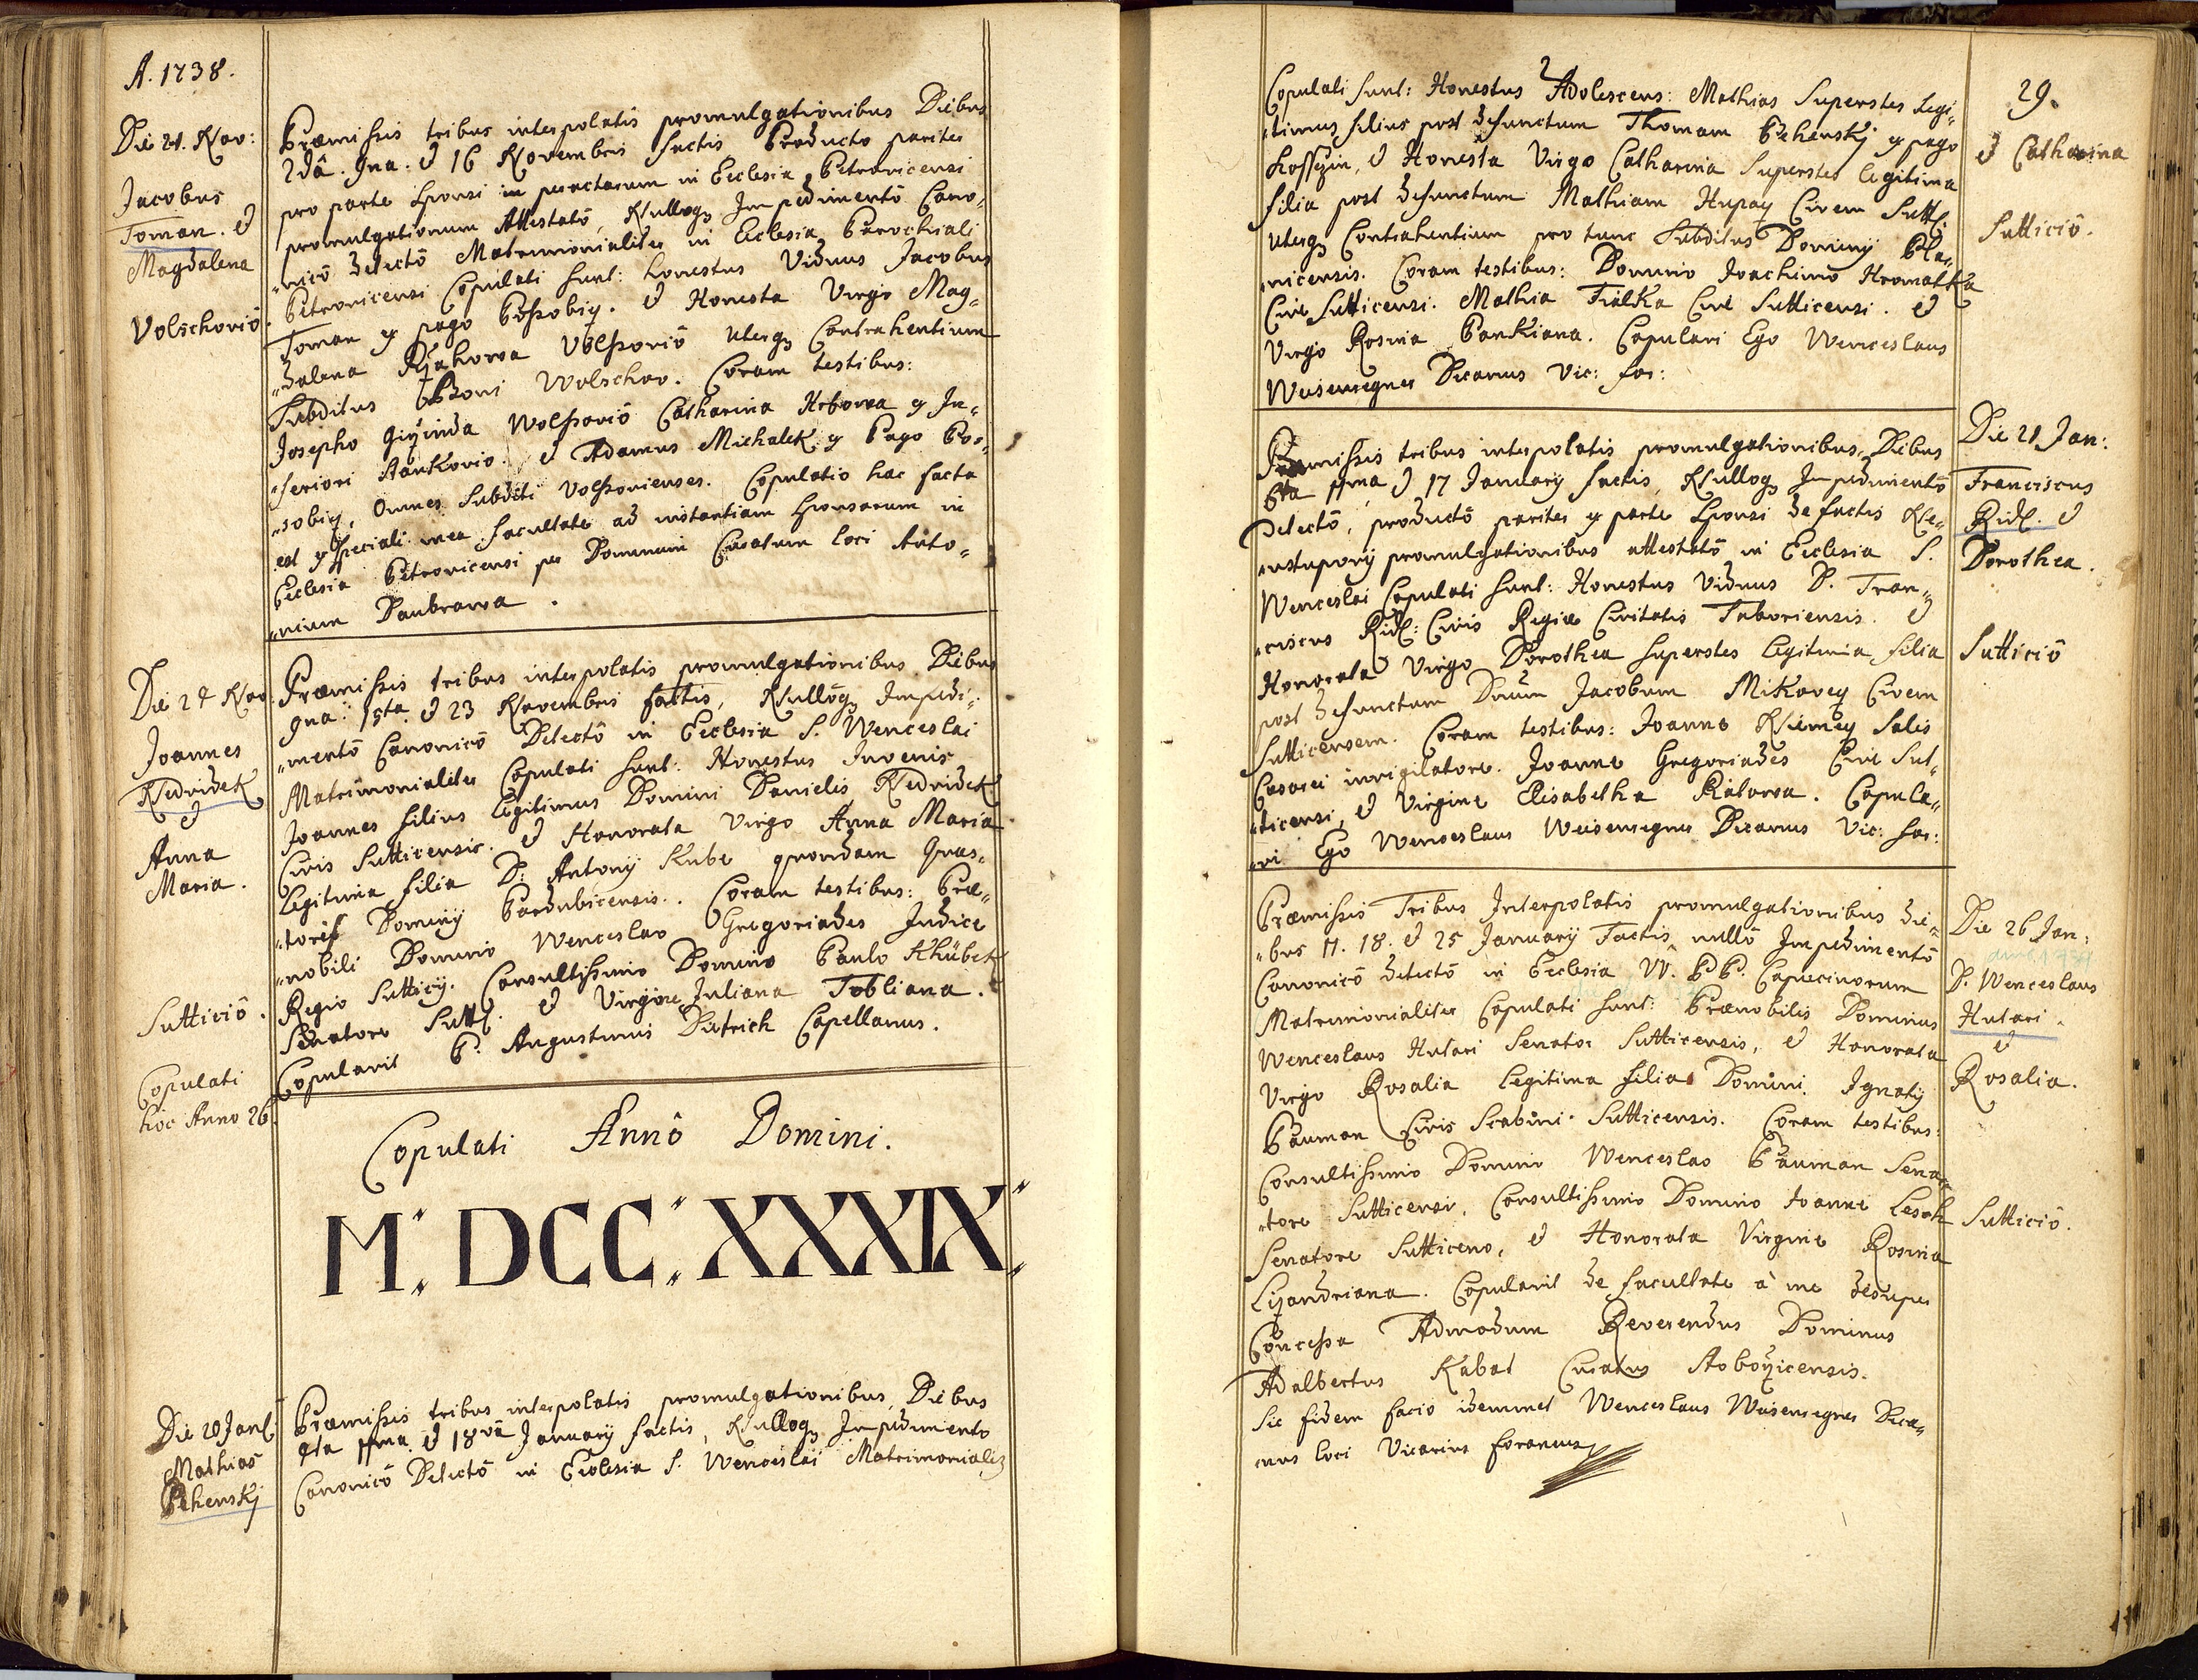 A. 1738.
Die 21. Nov:
Jacobus
Toman. et
Magdalena
Volschoviô.
Præmissis tribus interpolatis promulgationibus Diebus
2dâ. 9na. et 16 Novembris factis Producto pariter
pro parte Sponsi in peractarum in Ecclesia Petrovicensi
promulgationum Attestatô, Nulloq Impedimentô Cano„
„nicô detectô Matrimonialiter in Ecclesia Parochiali
Petrovicensi Copulati sunt: honestus Viduus Jacobus
Toman ex pago Posobicz. et Honesta Virgo Mag„
„dalena Volssoviô uterq Contrahentium
Subditus Dioni Wolschov. Coram testibus:
Josepho Wolssoviô Catharina Hrbowa ex In„
„feriori Stankovio. et Adamus Michalek ex Pago Po„
„sobicz, Omnes Subditi Volssovienses. Copulatio hæc facta
est ex speciali mea facultate ad instantiam Sponsorum in
Ecclesia Petrovicensi per Dominum Curatum loci Anto„
„nium Daubrawa.
Die 24 Nov.
Joannes
Nedvidek
et
Anna
Maria.
Sutticiô.
Copulati
hoc Anno 26.
Præmissis tribus interpolatis promulgationibus Diebus
9na. 16ta. et 23 Novembris factis, Nulloq Impedi„
„mentô Canonicô Detectô in Ecclesia S. Wenceslai
Matrimonialiter Copulati sunt: Honestus Juvenis
Joannes filius legitimus Domini Danielis Nedvidek
Civis Sutticensis. et Honorata Virgo Anna Maria
Legitima filia D: Antonij Kube quondam Quæs„
„toris Dominij Pardubicensis. Coram testibus: Præ„
„nobili Domino Wenceslao Gregoriades Judice
Regio Sutticij. Consultissimo Domino Paulo Khübek
Senatore Sutt. et Virgine Juliana Tobliana.
Copulavit P. Augustinus Dietrich Capellanus.
Copulati Annô Domini.
M„ DCC„ XXXIX„
Die 20 Jan
Mathias
Pchenskj
Præmissis tribus interpolatis promulgationibus, Diebus
6ta 11ma et 18va Januarij factis, Nulloq Impedimento
Canonicô Detectô in Ecclesia S. Wenceslai Matrimonialiꝫ
29.
et Catharina
Sutticiô.
Copulati sunt: Honestus Adolescens: Mathias Superstes legi„
„timus filius post defunctum Thomam Pchenskj ex pago
et Honesta Virgo Catharina Superstes legitima
filia post defunctum Mathiam Hupacz Civem Sutt.
uterq Contrahentium pro tunc Subditus Dominij Pla„
„nicensis. Coram testibus: Domino Joachimo Hromatka
Cive Sutticensi. Mathia Fialka Cive Sutticensi. et
Virgo Rosina Pankiana. Copulavi Ego Wenceslaus
Weisensegner Decanus Vic: for:
Die 21 Jan:
Franciscus
Ridl. et
Dorothea.
Sutticiô
Præmissis tribus interpolatis promulgationibus, Diebus
6ta 11ma et 17 Januarij factis, Nulloq Impedimentô
Detectô, productô pariter ex parte Sponsi de factis Ne„
promulgationibus attestatô in Ecclesia S.
Wenceslai Copulati sunt: Honestus Viduus D. Fran„
„ciscus Ridl: Civis Regiæ Civitatis Taboriensis. et
Honorata Virgo Dorothea Superstes legitima filia
post defunctum Dnum Jacobum Mikavecz Civem
Sutticensem. Coram testibus: Joanne Niemecz Salis
Cæsarei invigilatore. Joanne Gregoriades Cive Sut„
„ticensi, et Virgine Elisabetha Ratowa. Copula„
„vi Ego Wenceslaus Weisensegner Decanus Vic: for:
Die 26 Jan:
D. Wenceslaus
Hutari.
et
Rosalia.
Sutticiô.
Præmissis Tribus Interpolatis promulgationibus die„
„bus 11. 18. et 25 Januarij Factis, nullô Impedimentô
Canonicô detectô in Ecclesia VV. P.P. Capucinorum
Matrimonialiter Copulati sunt: Prænobilis Dominus
Wenceslaus Hutari Senator Sutticensis, et Honorata
Virgo Rosalia legitima filia Domini Ignatij
Pauman Civis Scabini Sutticensis. Coram testibus:
Consultissimo Domino Wenceslao Pauman Sena„
„tore Sutticensi, Consultissimo Domino Joanne Lesak
Senatore Sutticeno, et Honorata Virgine Rosina
Lizandriana. Copulavit de facultate à me desuper
Concessa Admodum Reverendus Dominus
Adalbertus Kabat Curatus
Sic fidem facio idemmet Wenceslaus Weisensegner Deca„
„nus loci Vicarius foraneus